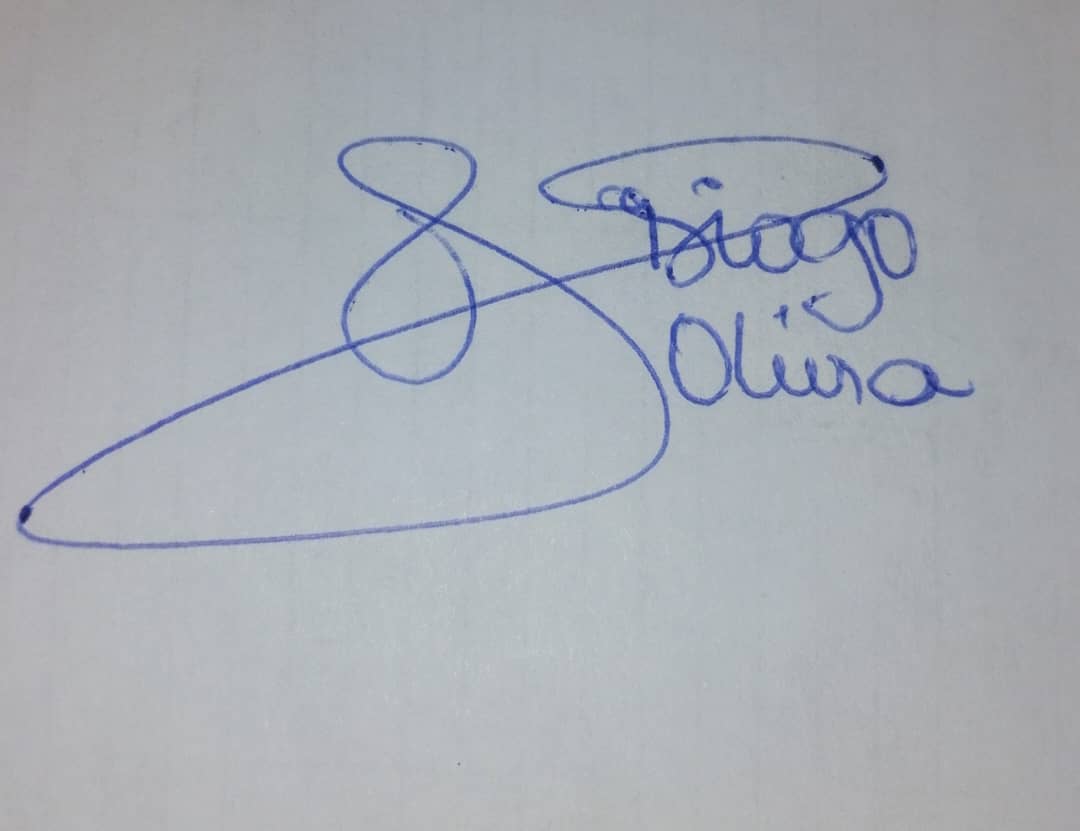 Diogo
Olivra